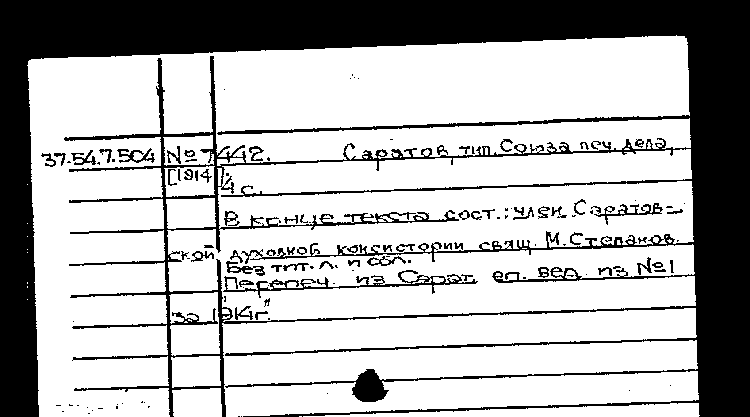 37.54.7.504 № 7442. Саратов, тип. Союза печ. дела,
[1914].
4 с.
В конце текста сост.: член Саратов-
ской духовной консистории свящ. М. Степанов.
Без тит. л. и обл.
Перепеч. из "Сарат. еп. вед. из № 1
за 1914 г."